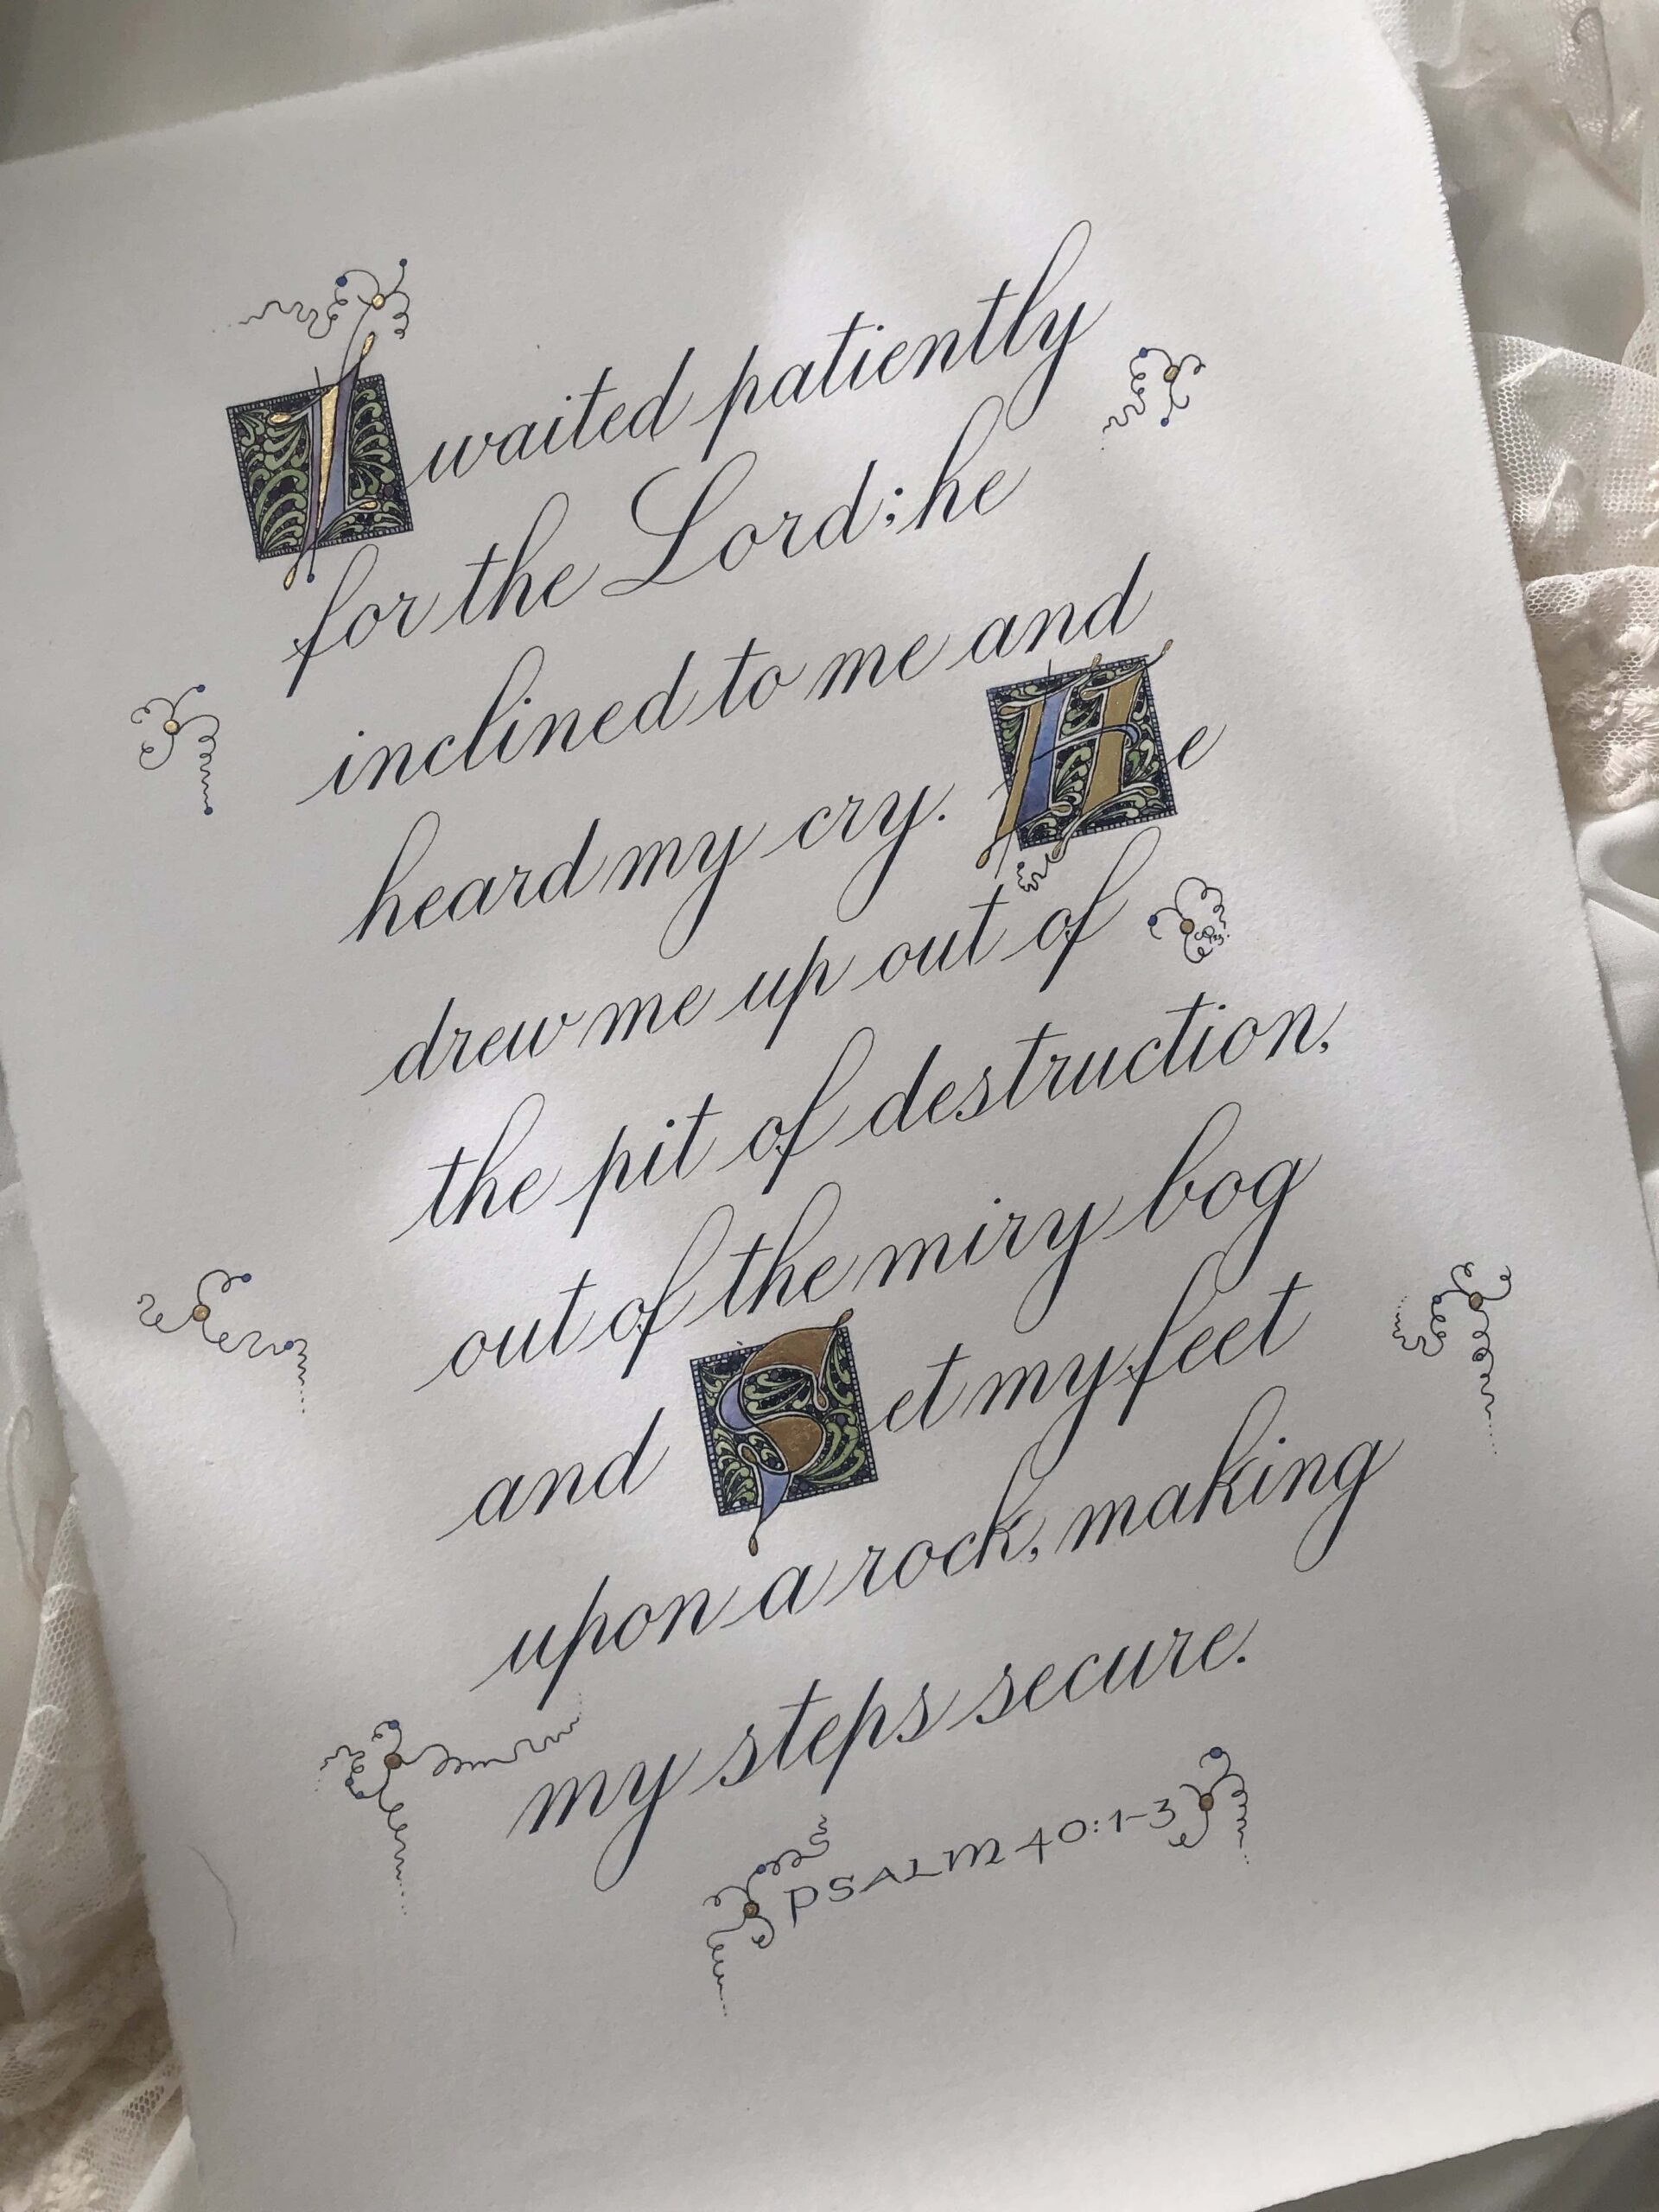 I waited patiently
for the Lord; he
inclined to me and
heard my cry. He
drew me up out of
the pit of destruction,
out of the miry bog
and Set my feet
upon a rock, making
my steps secure.
PSALM 40:1-3